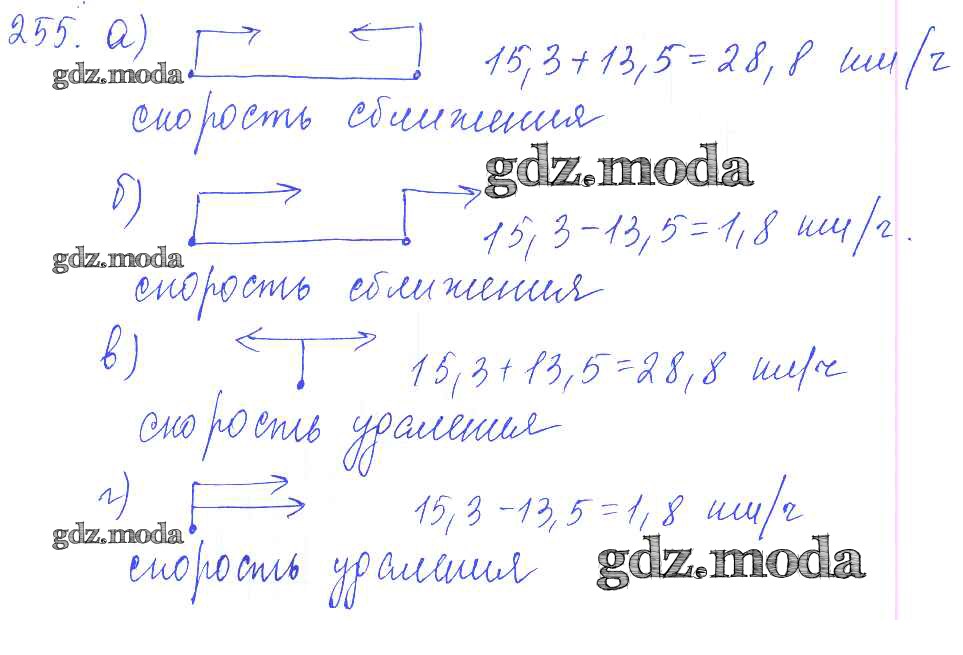 255. а) 15,3+13,5=28,8 км/ч
gdz.moda
скорость сближения
gdz.moda
б) 15,3-13,5=1,8 км/ч.
gdz.moda
скорость сближения
в) 15,3+13,5=28,8 км/ч
скорость удаления
г) 15,3-13,5=1,8 км/ч
gdz.moda
скорость удаления gdz.moda